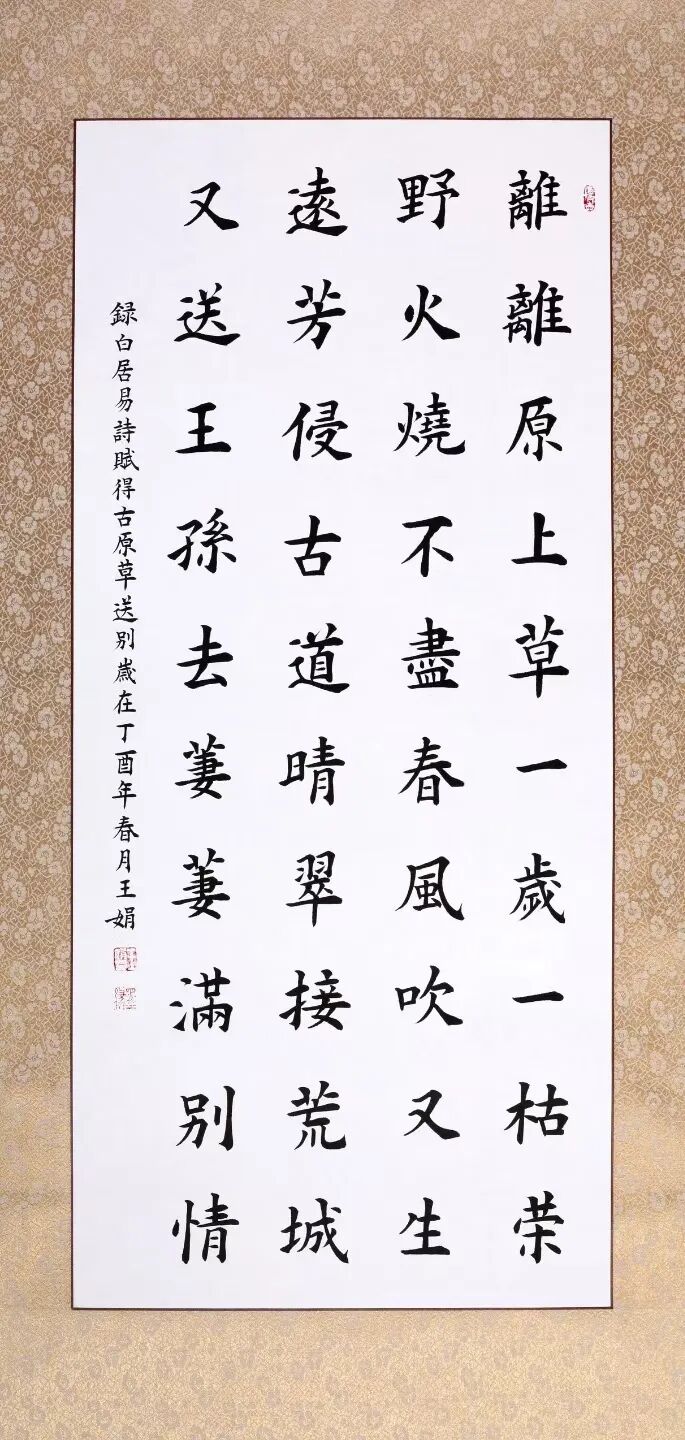 離離原上草一歲一枯荣
野火燒不盡春風吹又生
遠芳侵古道晴翠接荒城
又送王孫去萋萋滿別情
録白居易詩賦得古原草送别嵗在丁酉年春月王娟